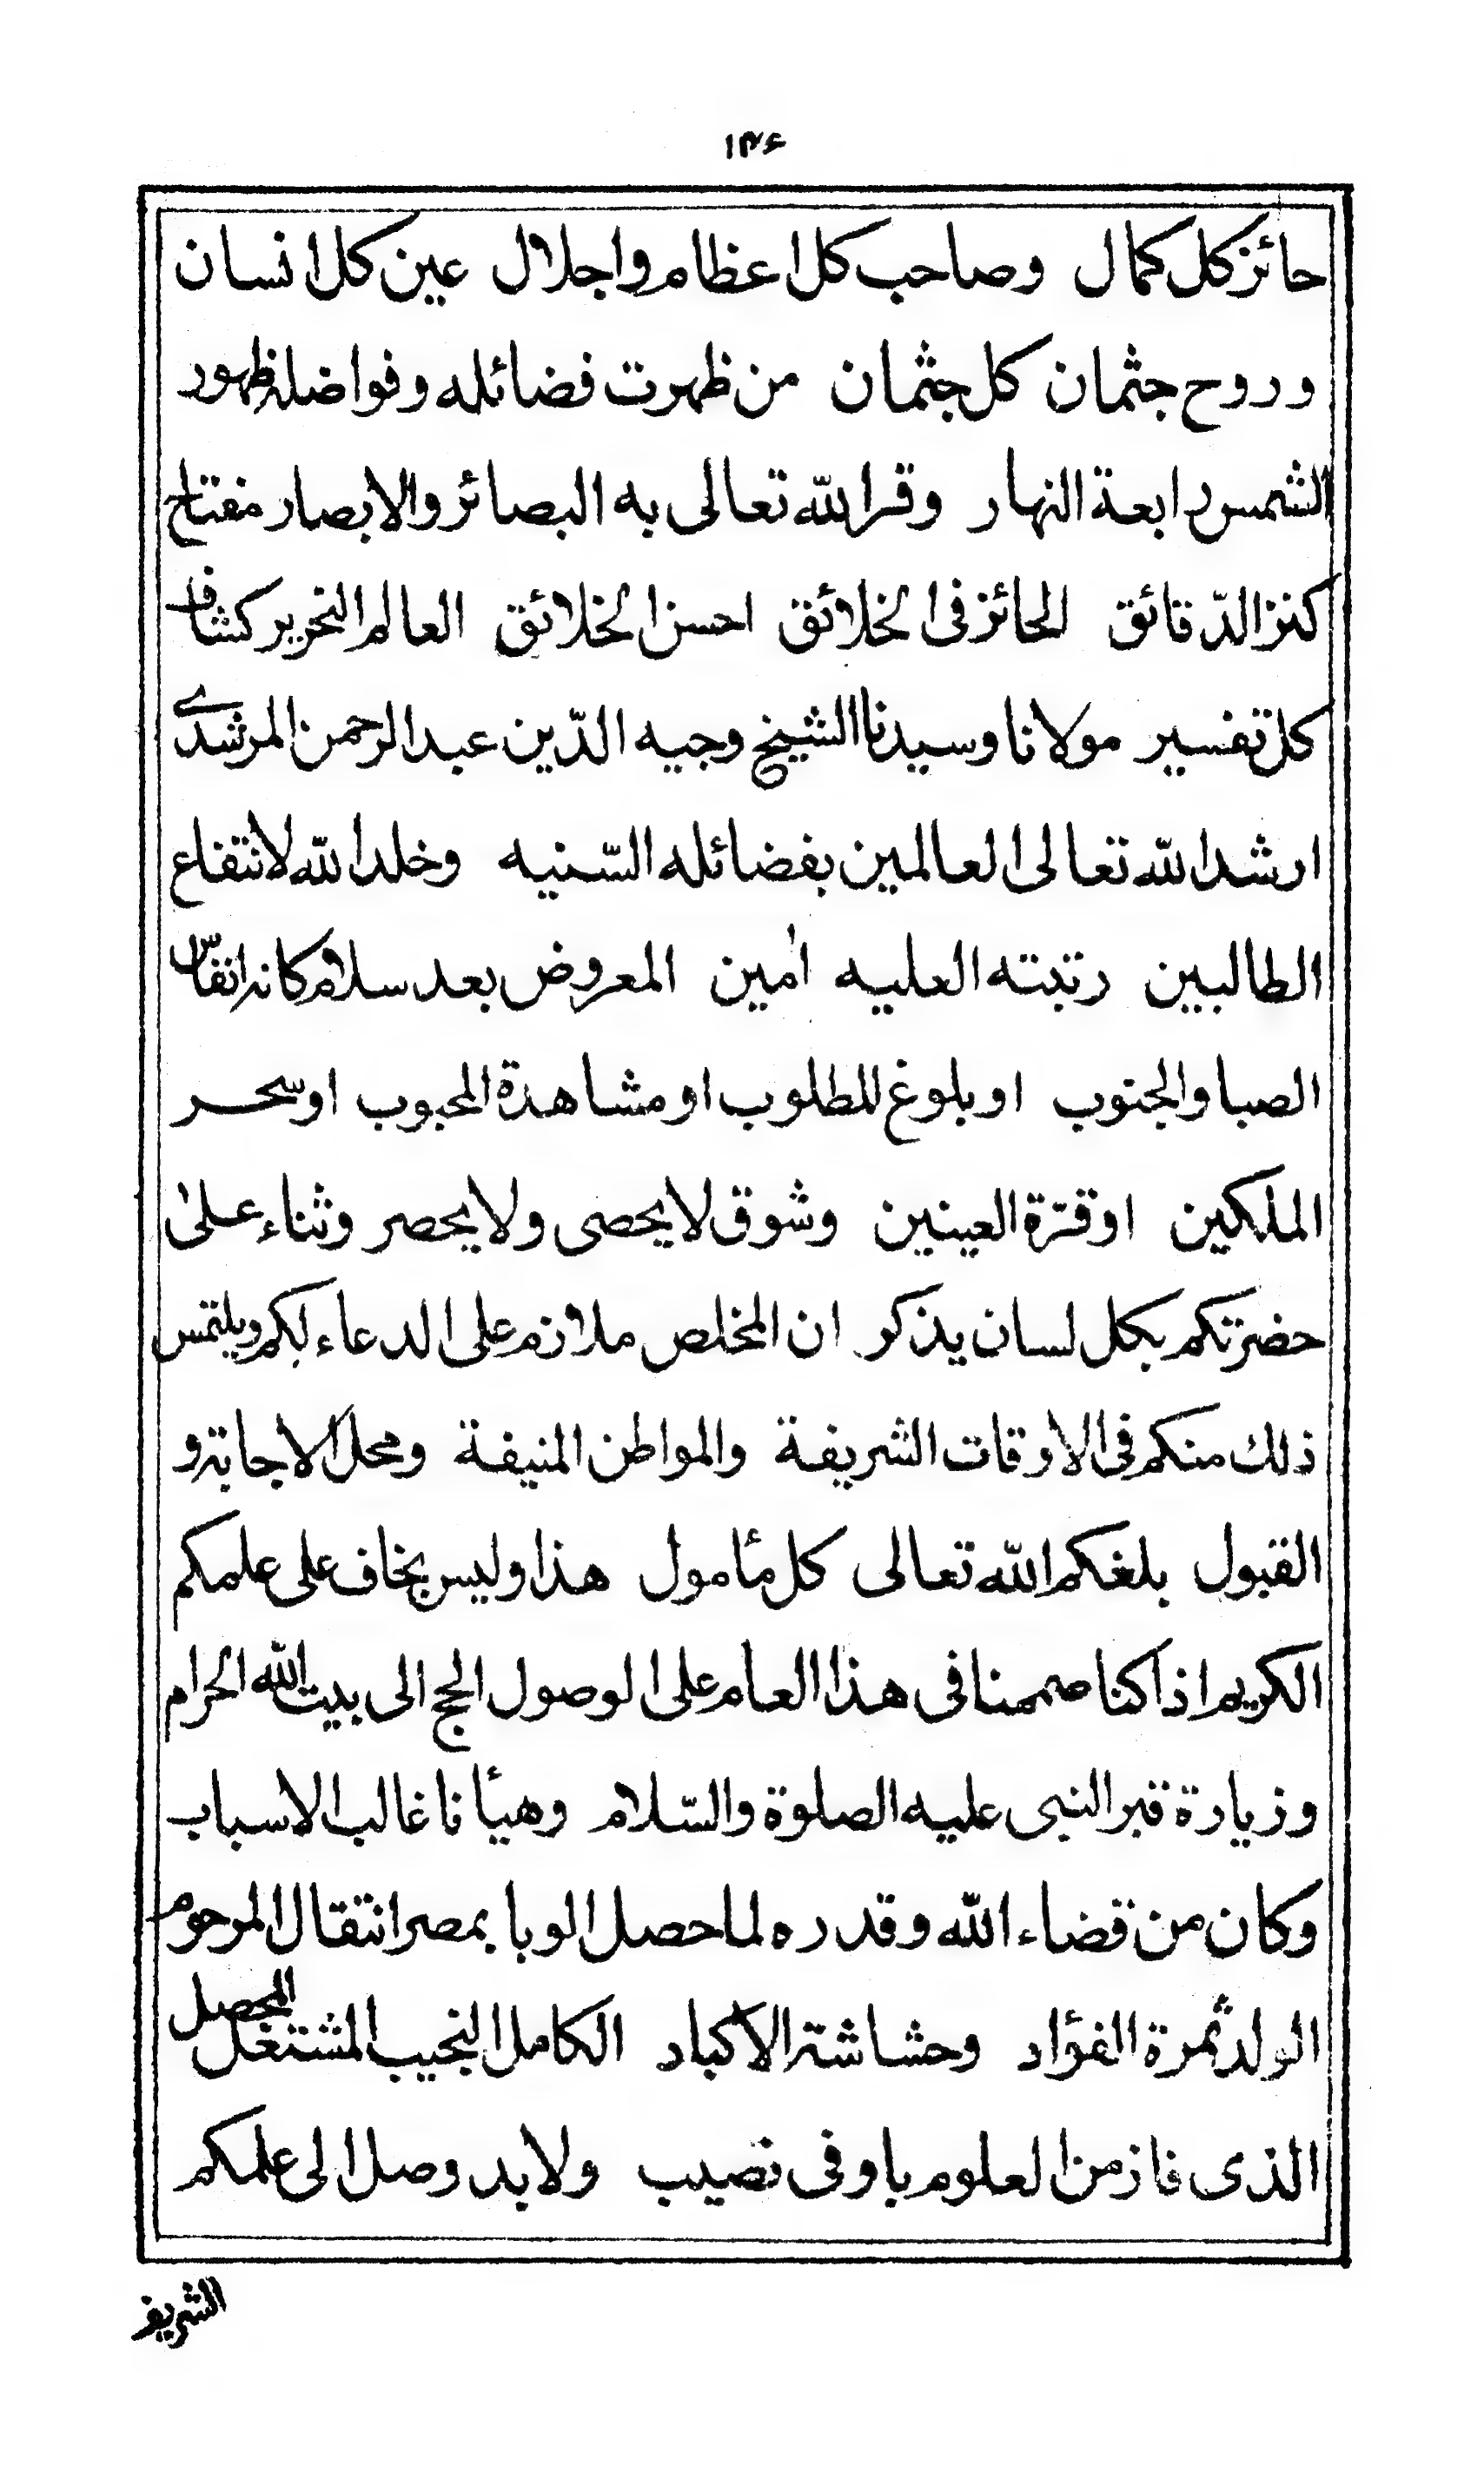 ١٣٦
حائز كل كمال وصاحب كل اعظام واجلال عين كل انسان
وروح جثمان كل جثمان من ظهرت فضائله وفواضله ظهور
الشمس رابعة النهار وقر الله تعالى به البصائر والابصار مفتاح
كنز الدّقائق الحائز فى الخلائق احسن الخلائق العالم النحرير كشاف
كل تفسير مولانا وسيدنا الشيخ وجيه الدّين عبد الرحمن المرشدى
ارشد الله تعالى العالمين بفضائله السّنيه وخلد الله لانتفاع
الطالبين رتبته العليه اٰمين المعروض بعد سلام كانه انفاس
الصبا والجنوب او بلوغ للطلوب او مشاهدة المحبوب او سحر
الملكين او قرّة العينين وشوق لا يحصى ولا يحصر وثناء على
حضرتكم بكل لسان يذكر ان المخلص ملازم على الدعاء لكم ويلتمس
ذلك منكم فى الاوقات الشريفة والمواطن المنيفة ومحل الاجابة و
القبول بلغكم الله تعالى كل مأمول هذا وليس بخاف على علمكم
الكريم اذا كنا صممنا فى هذا العام على الوصول الحج الى بيت الله الحرام
وزيارة قبر النبى عليه الصلوة والسّلام وهيأنا غالب الاسباب
وكان من قضاء الله وقدره لما حصل الوبا بمصر انتقال المرحوم
الولد ثمرة الفؤاد وحشاشة الاكباد الكامل النجيب المشتغل المحصل
الذى فاز من العلوم باوفى نصيب ولا بد وصل الى علمكم
الشريف